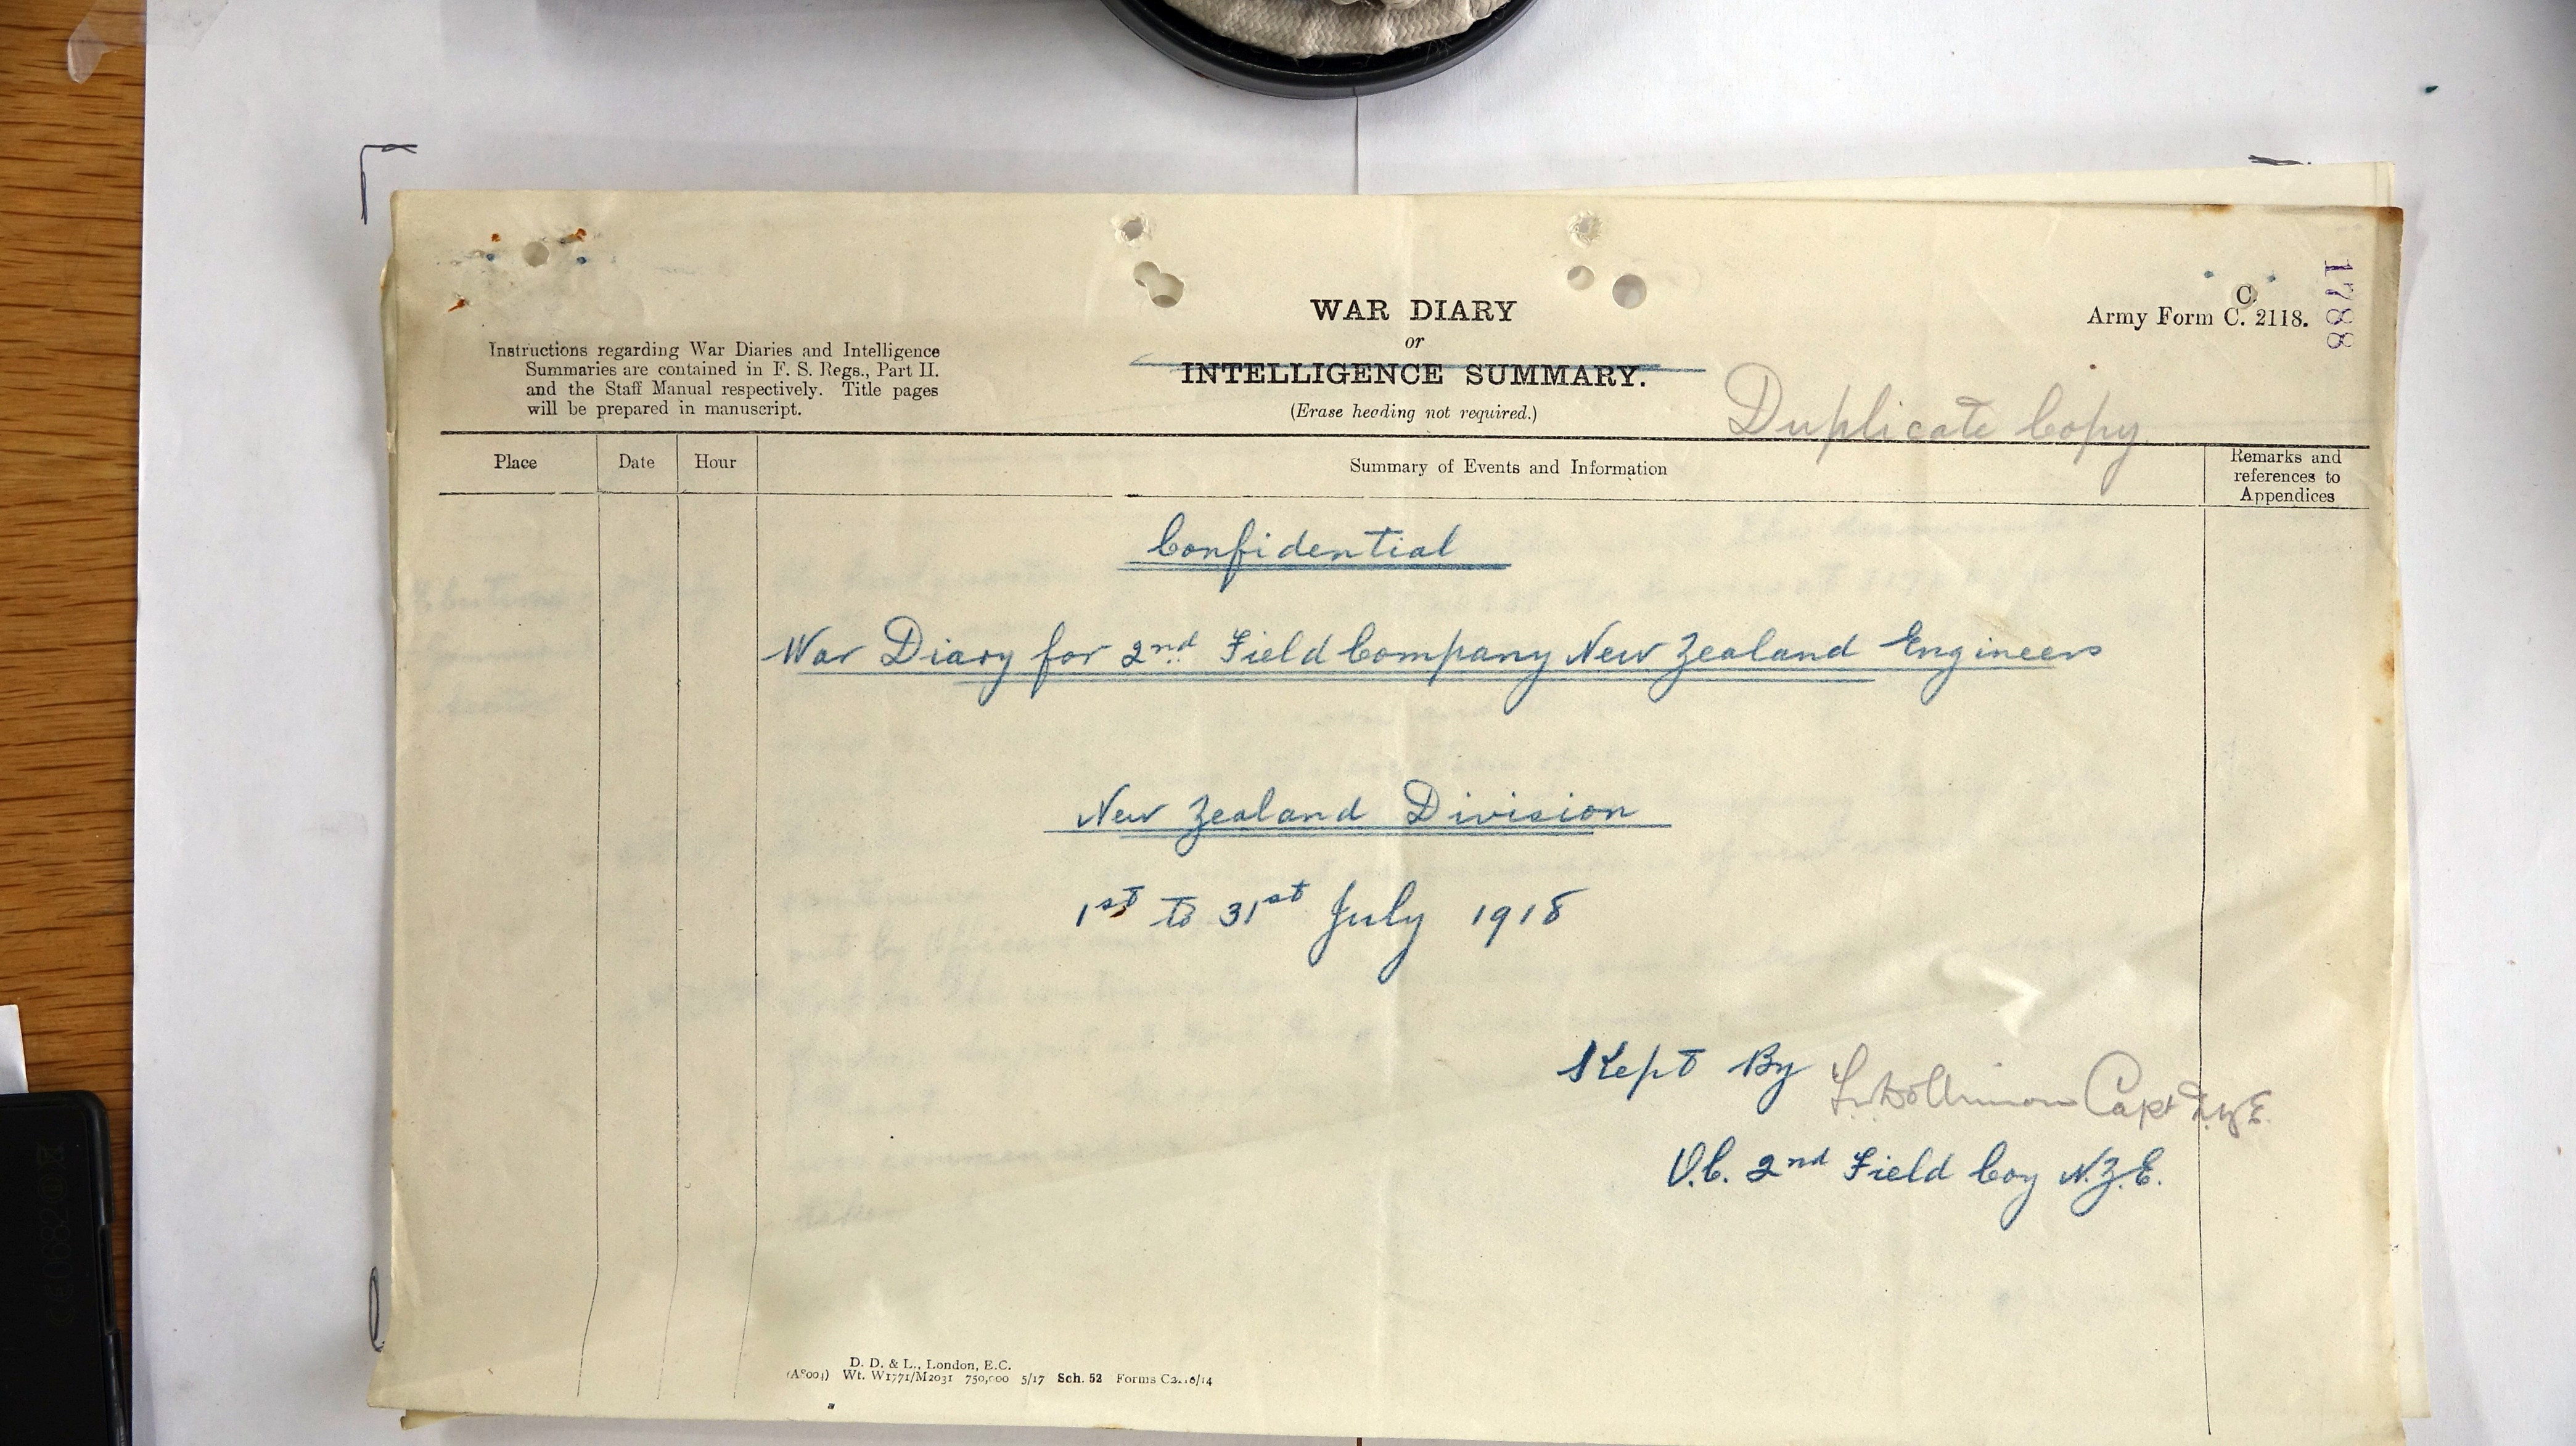 1788
C.
Army Form C. 2118.
WAR DIARY
or
INTELLIGENCE SUMMARY.
(Erase heading not required.)
Instructions regarding War Diaries and Intelligence
Summaries are contained in F. S. Regs., Part II.
and the Staff Manual respectively. Title pages
will be prepared in manuscript.
Duplicate Copy
Place Date Hour Summary of Events and Information Remarks and references to Appendices
Confidential
War Diary for 2nd Field Company New Zealand Engineers
New Zealand Division
1st to 31st July 1918
Kept By Capt N.Z.E.
O.C. 2nd Field Coy N.Z.E.
D. D. & L., London, E.C.
Wt. W1771/M2031 750,000 5/17 Sch. 52 Forms